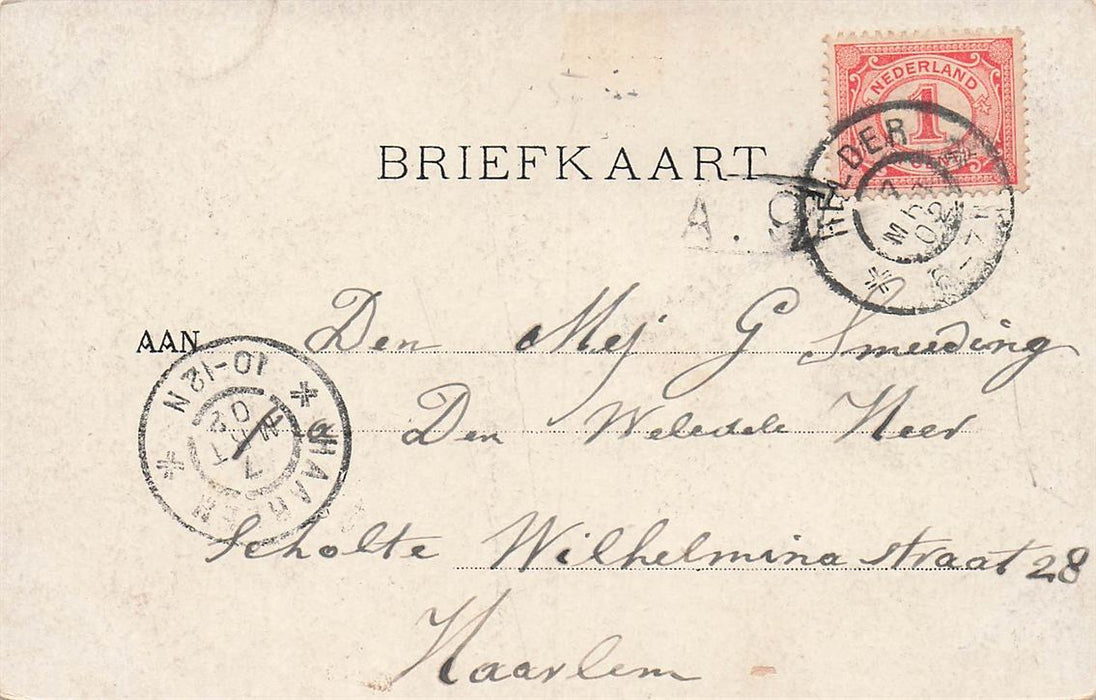 NEDERLAND
1
CENT
BRIEFKAART
HELDER
7 MRT 02
A. 9
AAN Den Mej G Smeeding
Den Weledele Heer
Scholte Wilhelminastraat 28
Haarlem
HAARLEM
7 MRT 02
10-12 N